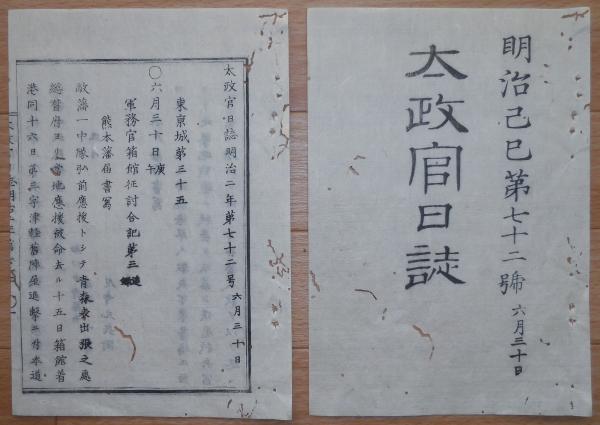 明治己巳第七十二號 六月三十日
太政官日誌
太政官日誌明治二年第七十二号 六月三十日
東京城第三十五
〇六月三十日庚午
軍務官箱館征討合記第三
熊本藩届書写
敝藩一中隊弘前應援トシテ青森表出張之處
當地應援被命去ル十五日箱館着
港同十六日第三字津軽陣屋進撃ニ付本道